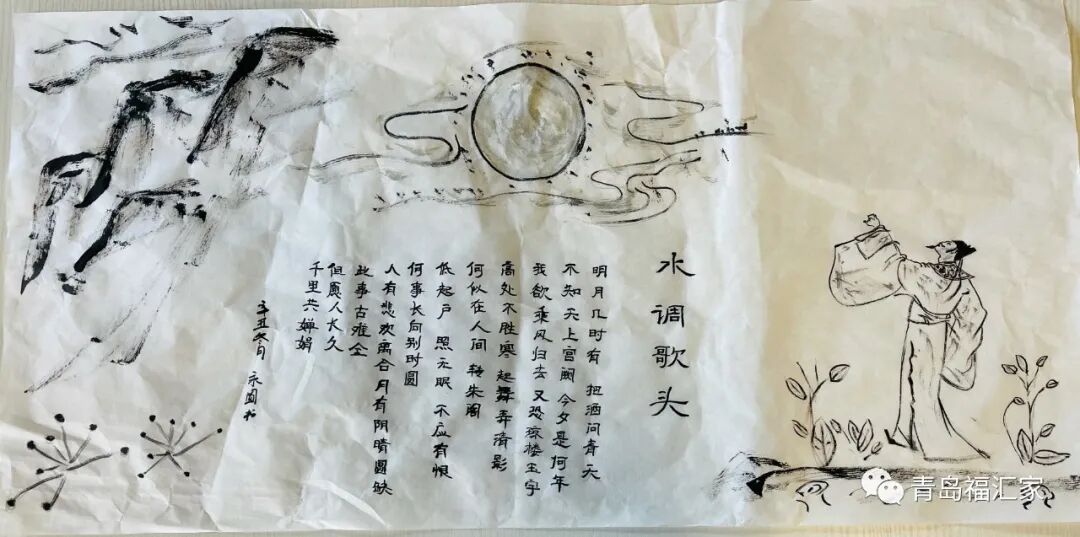 水调歌头
明月几时有 把酒问青天
不知天上宫阙 今夕是何年
我欲乘风归去 又恐琼楼玉宇
高处不胜寒 起舞弄清影
何似在人间 转朱阁
低起户 照无眠 不应有恨
何事长向别时圆
人有悲欢离合月有阴晴圆缺
此事古难全
但愿人长久
千里共婵娟
辛丑冬月
青岛福汇家